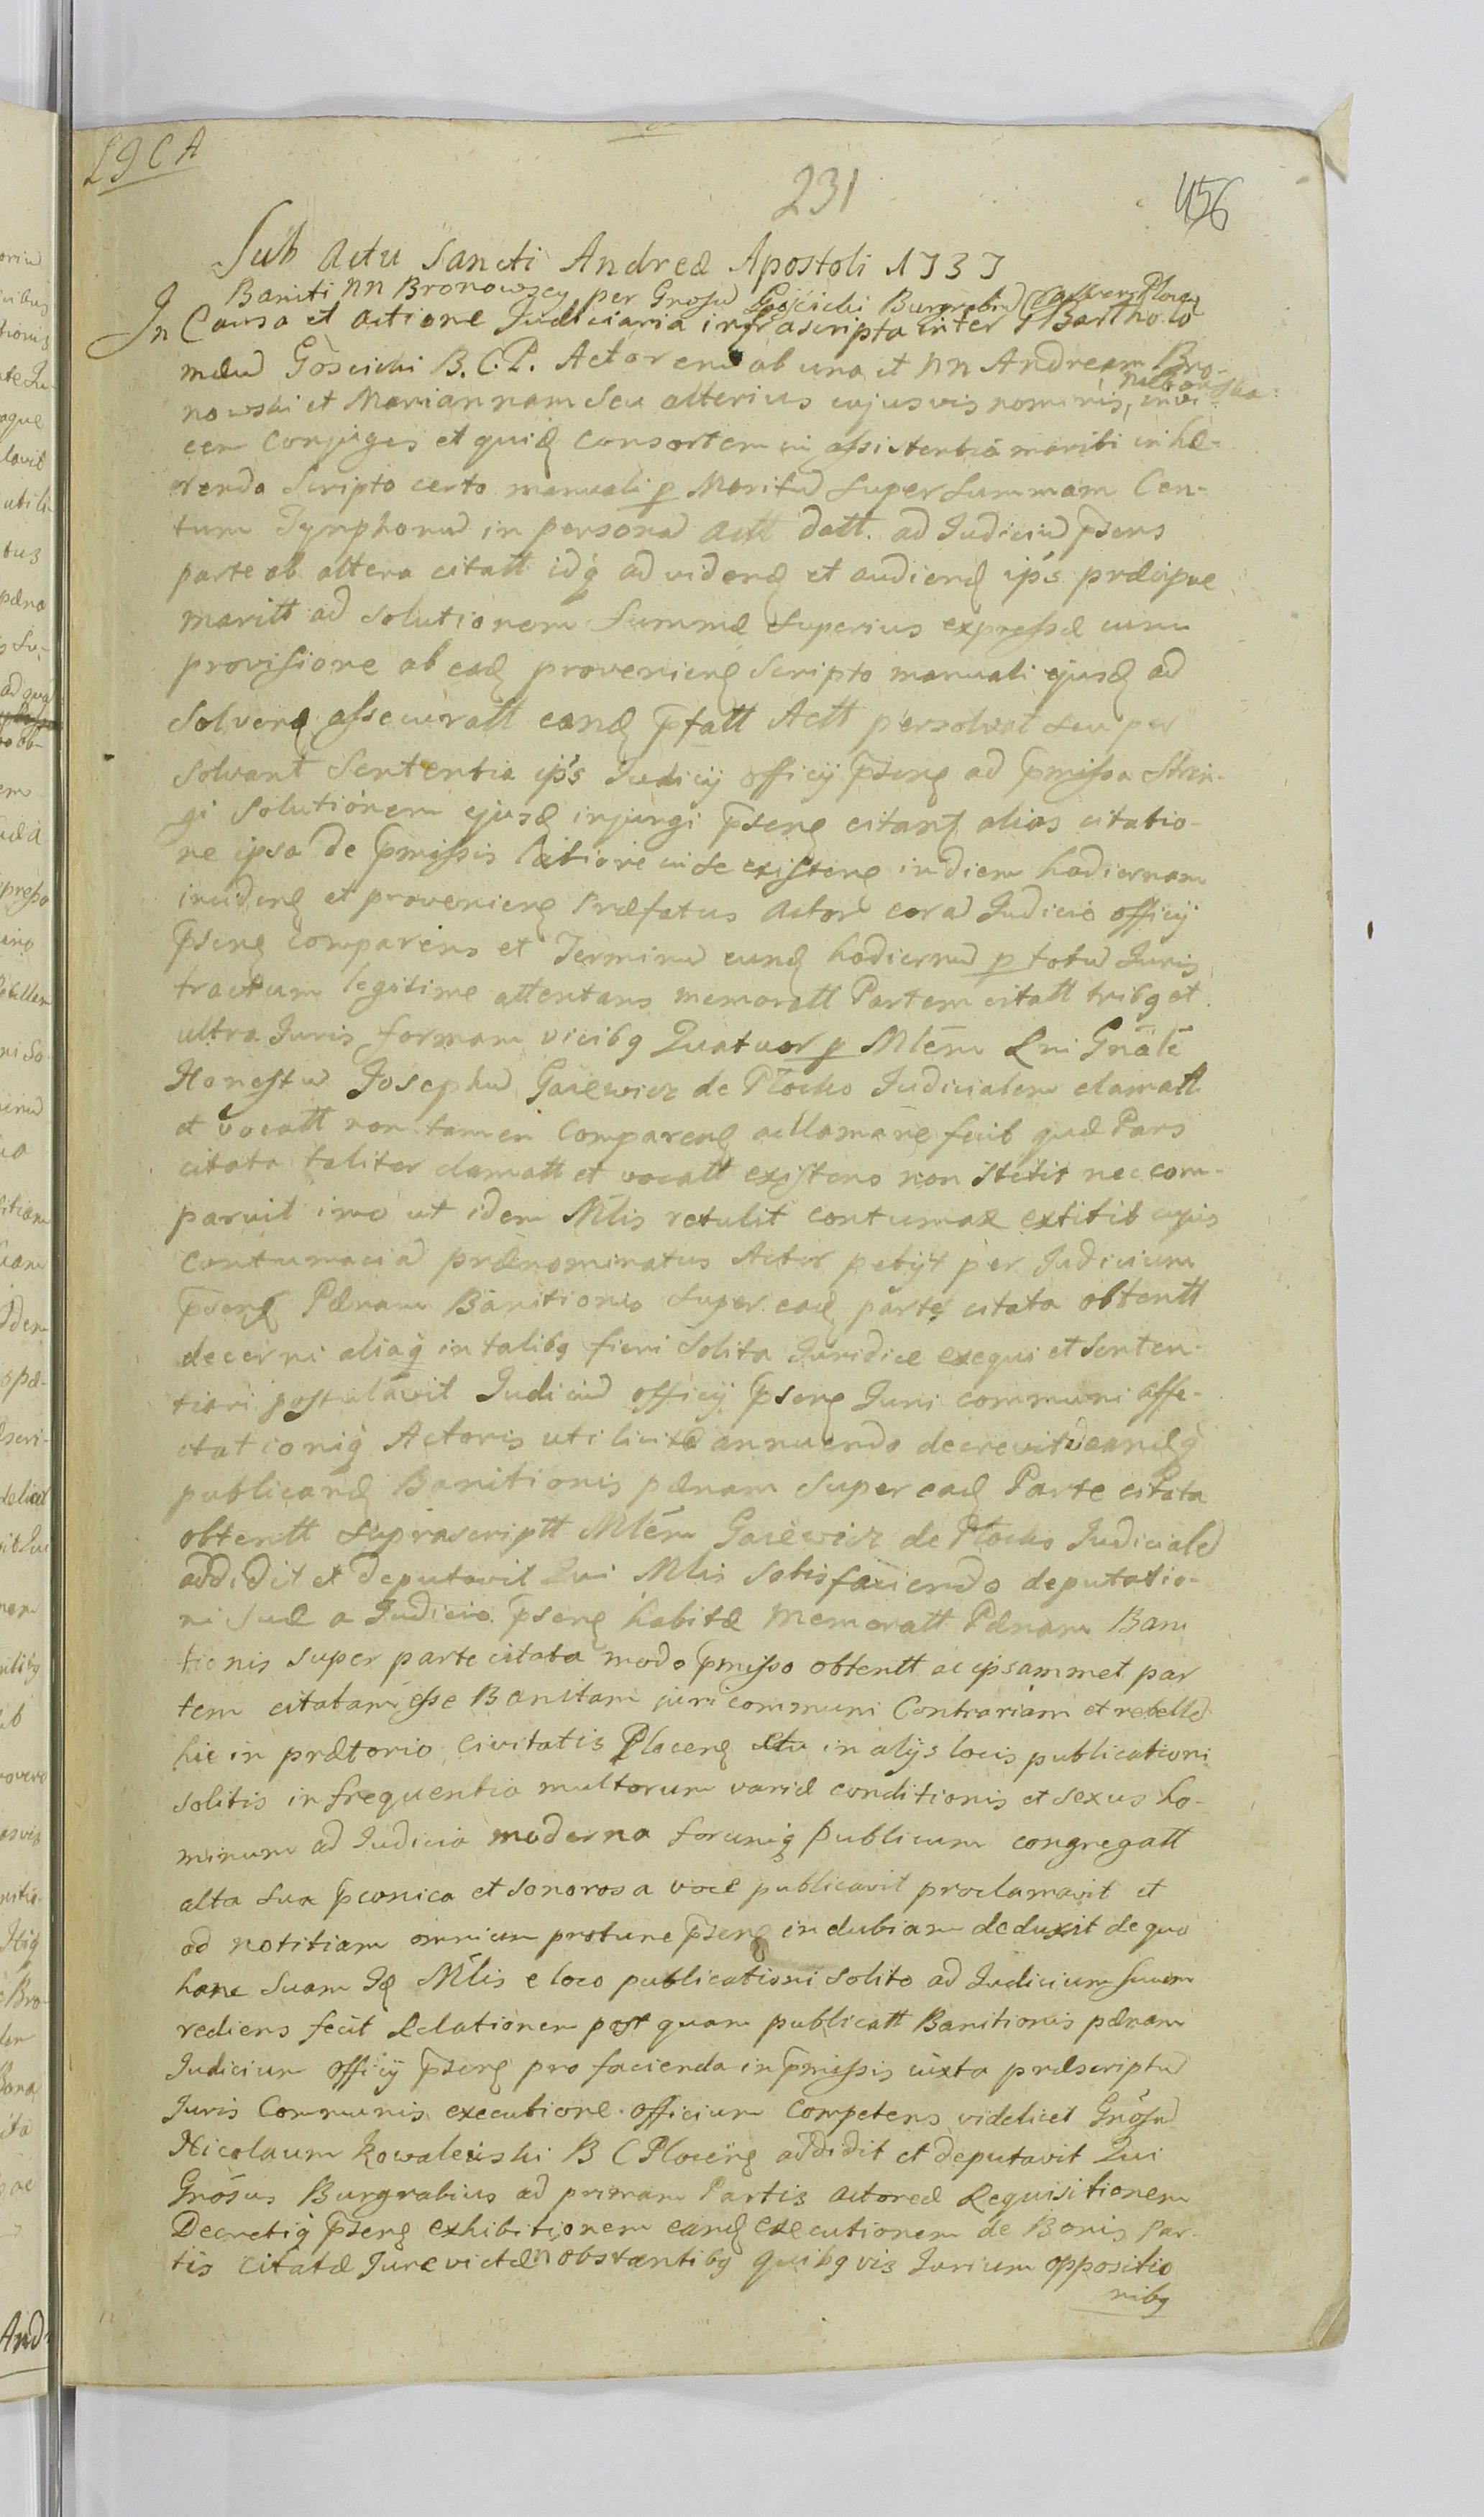 LGCA
231
456
Sub Actu Sancti Andreæ Apostoli 1737
Baniti NN Bronowscy per Grosũ Gościcki Burgrabiũ
In Causa et actione Judiciaria infrascripta inter G Bartholo
mæũ Gościcki B. C. P. Actorem ab una et NN Andream Bro-
nowski et Mariannam seu alterius cujusvis nominis, invi-
cem conjuges et quid̃ consortem in assistentia mariti inhæ-
rendo scripto certo manuali p̱ Maritũ super summam Cen-
tum Tymphonũ in personã Actt datt. ad Judiciũ p̃sens
parte ab altera citatt idq́ ad vidend̃ et audiend̃ ip's præcipue
maritt ad solutionem summæ superius expressæ cum
provisione ab ead̃ provenien̄ scripto manuali ejusd̃ ad
solvend̃ assecuratt eand̃ p̃fatt Actt persolvat seu per
solvant sententia ip's Judicij officij p̃sen̄ ad p̃missa strin-
gi solutionem ejusd̃ injungi p̃sen̄ citan̄ alias citatio-
ne ipsa de p̃missis latiore in se existen̄ in diem hodiernam
inciden̄ et provenien̄ Præfatus Actor corã Judicio officij
p̃sen̄ comparens et Terminũ eund̃ hodiernũ p̱ totũ Juris
tractum legitime attentans memoratt Partem citatt tribq et
ultra Juris formam vicibq Quatuor p̱ Mlẽm Rni Gnãlẽ
Honestũ Josephũ Gaiewicz de Plocko Judicialem clamatt
et vocatt non tamen comparen̄ acclamare fecit quæ Pars
citata taliter clamatt et vocatt existens non stetit nec com-
paruit imo ut idem Mlis retulit contumax extitit cujus
contumaciã prænominatus Actor petijt per Judicium
p̃sen̄ Pænam Banitionis super ead̃ parte citata obtentt
decerni aliaq́ in talibq fieri solita Juridice exequi et senten-
tiari postulavit Judiciũ officij p̃sen̄ Juri communi affe-
ctationiq́ Actoris uti licitæ annuendo decrevit eandq́
publicand̃ Banitionis pænam super ead̃ Parte citata
obtentt suprascriptt Mlẽm Gaiewicz de Plocko Judicialẽ
addidit et deputavit Qui Mlis satisfaciendo deputatio-
ni suæ a Judicio p̃sen̄ habitæ memoratt Pænam Bani
tionis super parte citata modo p̃misso obtentt ac ipsammet par
tem citatam esse Banitam juri communi Contrariam et rebellẽ
hic in prætorio civitatis Plocen̄ in alijs locis publicationi
solitis in frequentia multorum variæ conditionis et sexus ho-
minum ad Judicia moderna forumq́ publicum congregatt
alta sua p̃conica et sonorosa voce publicavit proclamavit et
ad notitiam omnium protunc p̃sen̄ indubiam deduxit de quo
hanc suam Id̃ Mlis e loco publicationi solito ad Judicium suum
rediens fecit Relationem post quam publicatt Banitionis pænam
Judicium officij p̃sen̄ pro facienda in p̃missis juxta præscriptũ
Juris Communis executione officium competens videlicet Gnõsũ
Nicolaum Kowalewski B C Plocen̄ addidit et deputavit Qui
Gnõsus Burgrabius ad primam Partis actoreæ Requisitionem
Decretiq́ p̃sen̄ exhibitionem eand̃ executionem de Bonis Par-
tis citatæ Jure victæ ñ obstantibq quibqvis Jurium oppositio
nibq